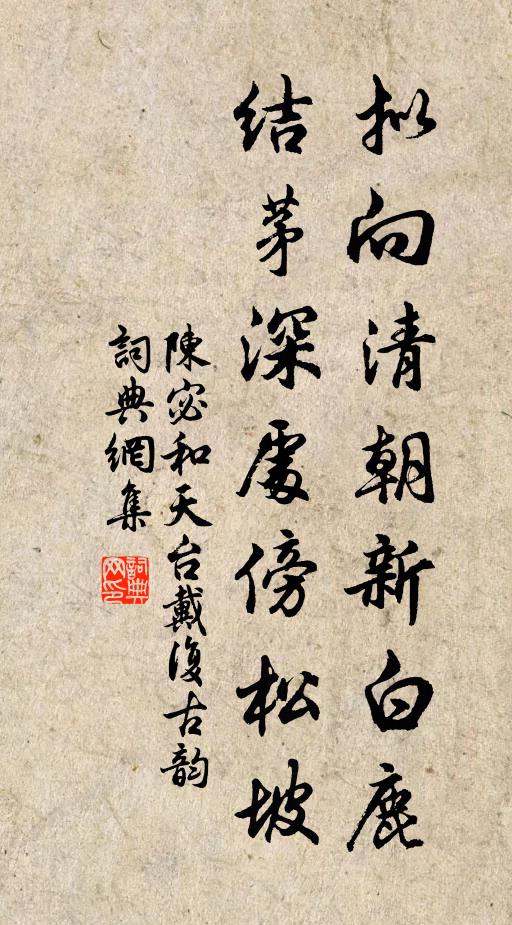 拟向清朝新白鹿
结茅深處傍松坡
陳宓和天台戴復古韵
詞典網集
詞典网印